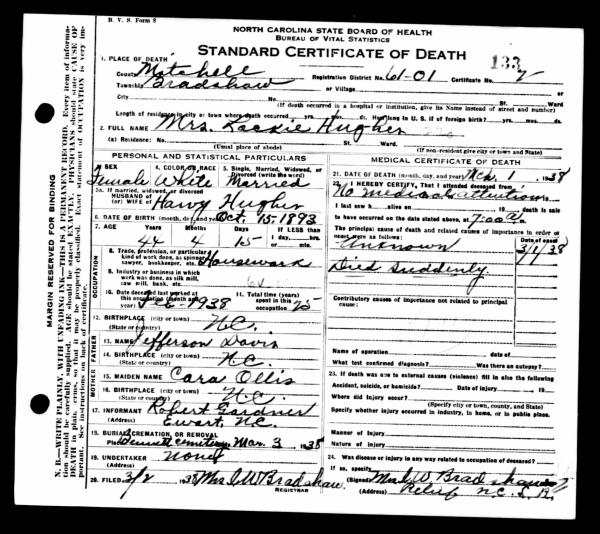 B. V. S. Form 8
NORTH CAROLINA STATE BOARD OF HEALTH
BUREAU OF VITAL STATISTICS
STANDARD CERTIFICATE OF DEATH
133
1. PLACE OF DEATH
County Mitchell Registration District No. 61-01 Certificate No. 7
Township Bradshaw or Village
City No. St. Ward
(If death occurred in a hospital or institution, give its Name instead of street and number)
Length of residence in city or town where death occurred yrs. mos. ds. How long in U. S. if of foreign birth? yrs. mos. ds.
2. FULL NAME Mrs. Lockie Hughes
(a) Residence: No. St. Ward
(Usual place of abode) (If non-resident give city or town and State)
PERSONAL AND STATISTICAL PARTICULARS
3. SEX 4. COLOR OR RACE 5. Single, Married, Widowed, or Divorced (write the word)
Female White Married
5a. If married, widowed, or divorced
HUSBAND of
(or) WIFE of Harvy Hughes
6. DATE OF BIRTH (month, day, and year) Oct. 15-1893
7. AGE Years Months Days If LESS than
44 4 15 1 day, hrs.
or min.
8. Trade, profession, or particular kind of work done, as spinner, sawyer, bookkeeper, etc. Housework
9. Industry or business in which work was done, as silk mill, saw mill, bank, etc.
10. Date deceased last worked at this occupation (month and year) Feb-1938 11. Total time (years) spent in this occupation 25
OCCUPATION
12. BIRTHPLACE (city or town)
(State or country) N.C.
FATHER
13. NAME Jefferson Davis
14. BIRTHPLACE (city or town)
(State or country) N.C.
MOTHER
15. MAIDEN NAME Cara Ollis
16. BIRTHPLACE (city or town)
(State or country) N.C.
17. INFORMANT Robert Gardner
(Address) Ewart, N.C.
18. BURIAL, CREMATION, OR REMOVAL
Place Bennett cemetery Date Mar. 3 1938
19. UNDERTAKER None
(Address)
20. FILED 3/2 1938 Mrs C W Bradshaw
REGISTRAR
MEDICAL CERTIFICATE OF DEATH
21. DATE OF DEATH (month, day, and year) Mch. 1 1938
22. I HEREBY CERTIFY, That I attended deceased from
No medical attention
I last saw h alive on 19 death is said
to have occurred on the date stated above, at 7:00 a m.
The principal cause of death and related causes of importance in order of onset were as follows: Date of onset
Unknown 3/1/38
Died suddenly
Contributory causes of importance not related to principal cause:
Name of operation date of
What test confirmed diagnosis? Was there an autopsy?
23. If death was due to external causes (violence) fill in also the following
Accident, suicide, or homicide? Date of injury 19
Where did injury occur?
(Specify city or town, county, and State)
Specify whether injury occurred in industry, in home, or in public place.
Manner of injury
Nature of injury
24. Was disease or injury in any way related to occupation of deceased?
If so, specify
(Signed) Mrs C W Bradshaw
(Address) Relief N.C. L.R.
MARGIN RESERVED FOR BINDING
N. B.—WRITE PLAINLY, WITH UNFADING INK—THIS IS A PERMANENT RECORD. Every item of information should be carefully supplied. AGE should be stated EXACTLY. PHYSICIANS should state CAUSE OF DEATH in plain terms, so that it may be properly classified. Exact statement of OCCUPATION is very important. See instructions on back of certificate.